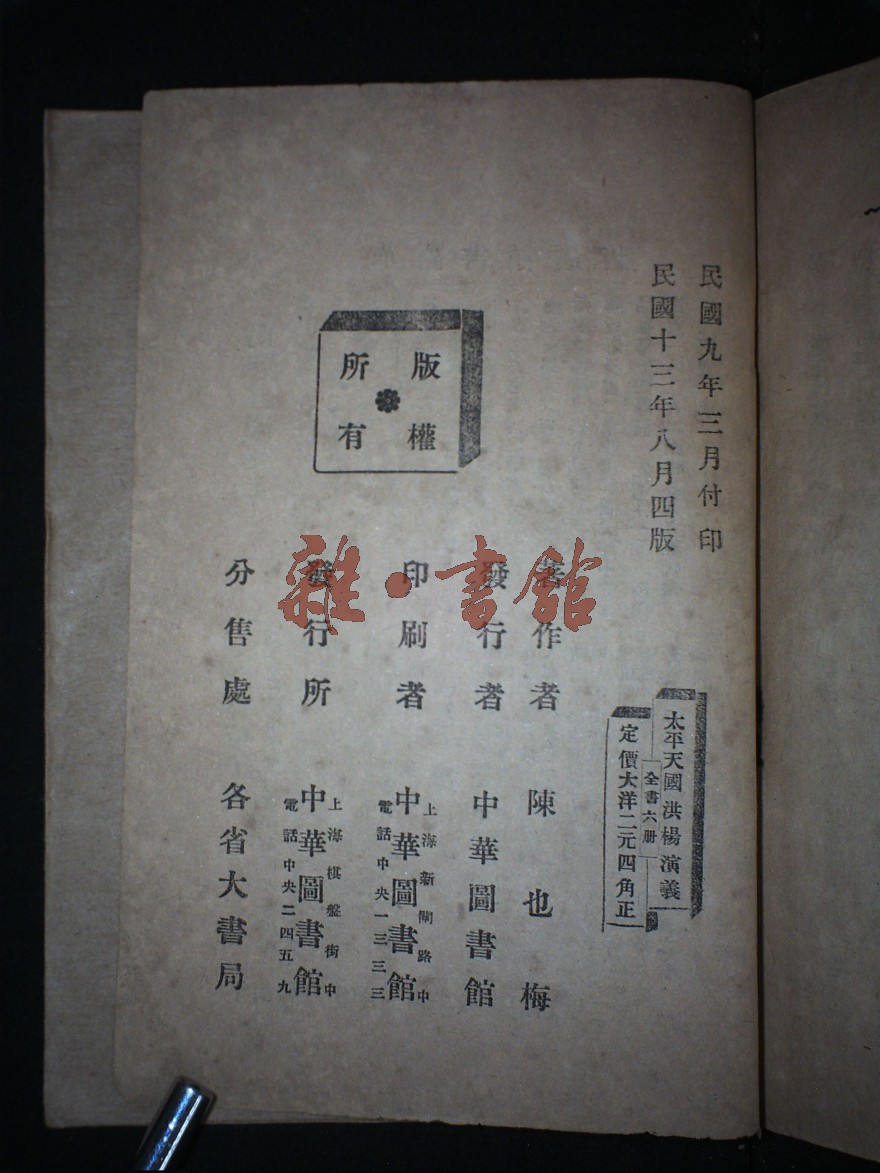 民國九年三月付印
民國十三年八月四版
太平天國洪楊演義
全書六册
定價大洋二元四角正
版權所有
著作者 陳也梅
發行者 中華圖書館
印刷者 上海新閘路中 中華圖書館 電話中央一三三三
發行所 上海棋盤街中 中華圖書館 電話中央二四五九
分售處 各省大書局
雜·書館